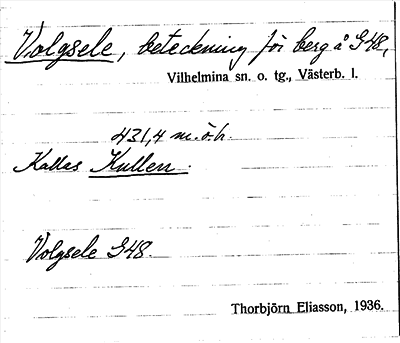 Volgsele, beteckning för berg å G48,
Vilhelmina sn. o. tg., Västerb. l.
431,4 m.ö.h.
Kallas Kullen.
Volgsele G48.
Thorbjörn Eliasson, 1936.